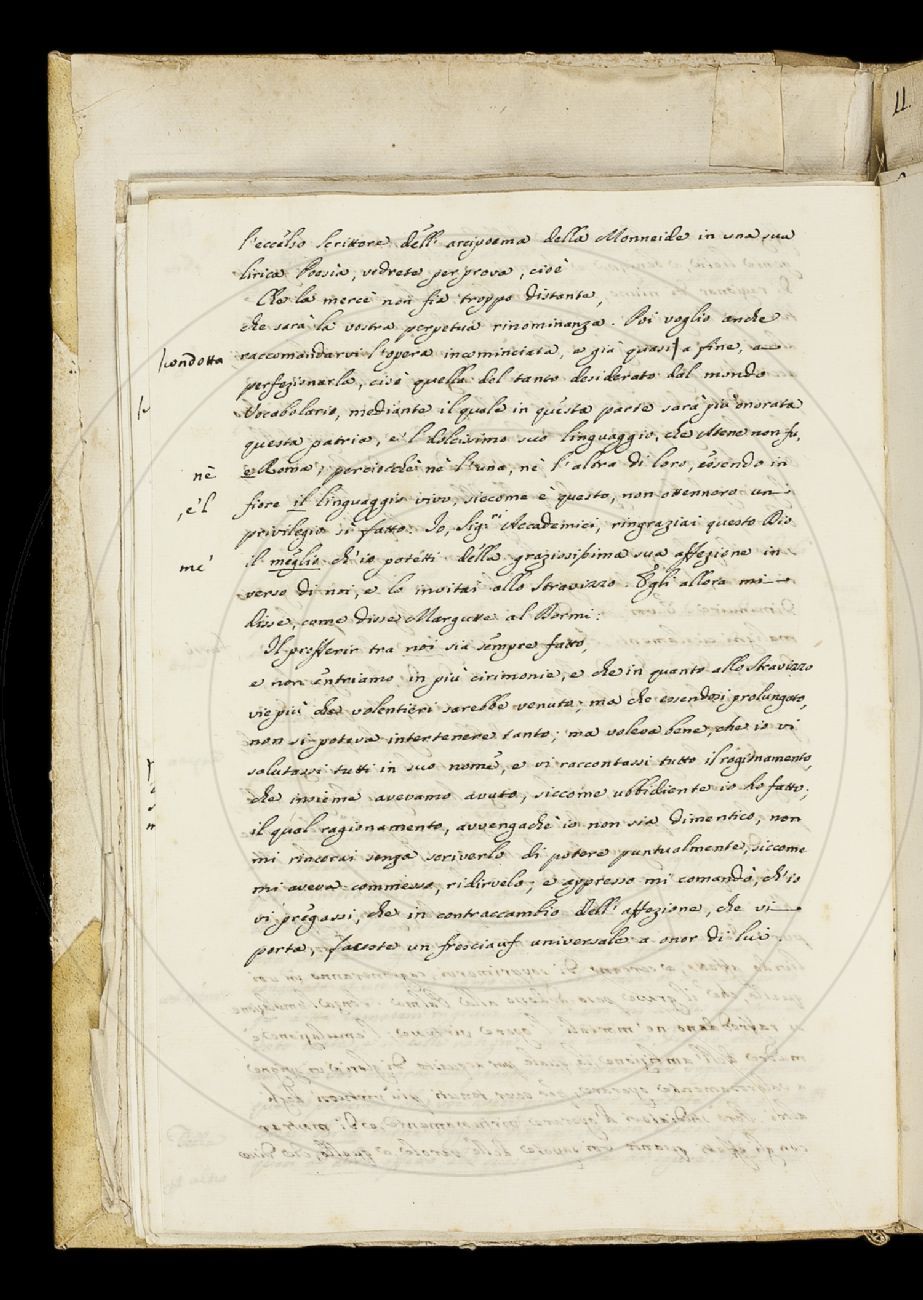 11
l'eccelso scrittore dell' arcipoema della Monneide in una sua
lirica Poesia, vedrete per prova, cioè
Che la mercè non fia troppo distante,
che sarà la vostra perpetua rinominanza. Poi voglio anche
condotta
raccomandarvi l'opera incominciata, e già quasi a fine, a
perfezionarla, cioè quella del tanto desiderato dal mondo
Vocabolario, mediante il quale in questa parte sarà più onorata
questa patria, e 'l dolcissimo suo linguaggio, che Atene non fu,
nè
e Roma; perciocchè nè l'una, nè l'altra di loro, essendo in
, e 'l
fiore il linguaggio vivo, siccome è questo, non ottennero un
privilegio sì fatto. Io, Sig.ri Accademici, ringraziai questo Dio
me'
il meglio ch' io potetti della graziosissima sua affezione in
verso di noi, e lo invitai allo Stravizzo. Egli allora mi
disse, come disse Margutte al Dormi:
Il profferir tra noi sia sempre fatto,
e non entriamo in più cirimonie, e che in quanto allo Stravizzo
vie più che volentieri sarebbe venuto; ma che essendosi prolungato,
non si poteva intertenere tanto; ma voleva bene, che io vi
salutassi tutti in suo nome, e vi raccontassi tutto il ragionamento,
che insieme avevamo avuto, siccome ubbidiente io ho fatto;
il qual ragionamento, avvengachè io non sia dimentico, non
mi rincorai senza scriverlo di potere puntualmente, siccome
mi aveva commesso, ridirvelo; e appresso mi comandò, ch' io
vi pregassi, che in contraccambio dell' affezione, che vi
porta, faceste un fresciauf universale a onor di lui.